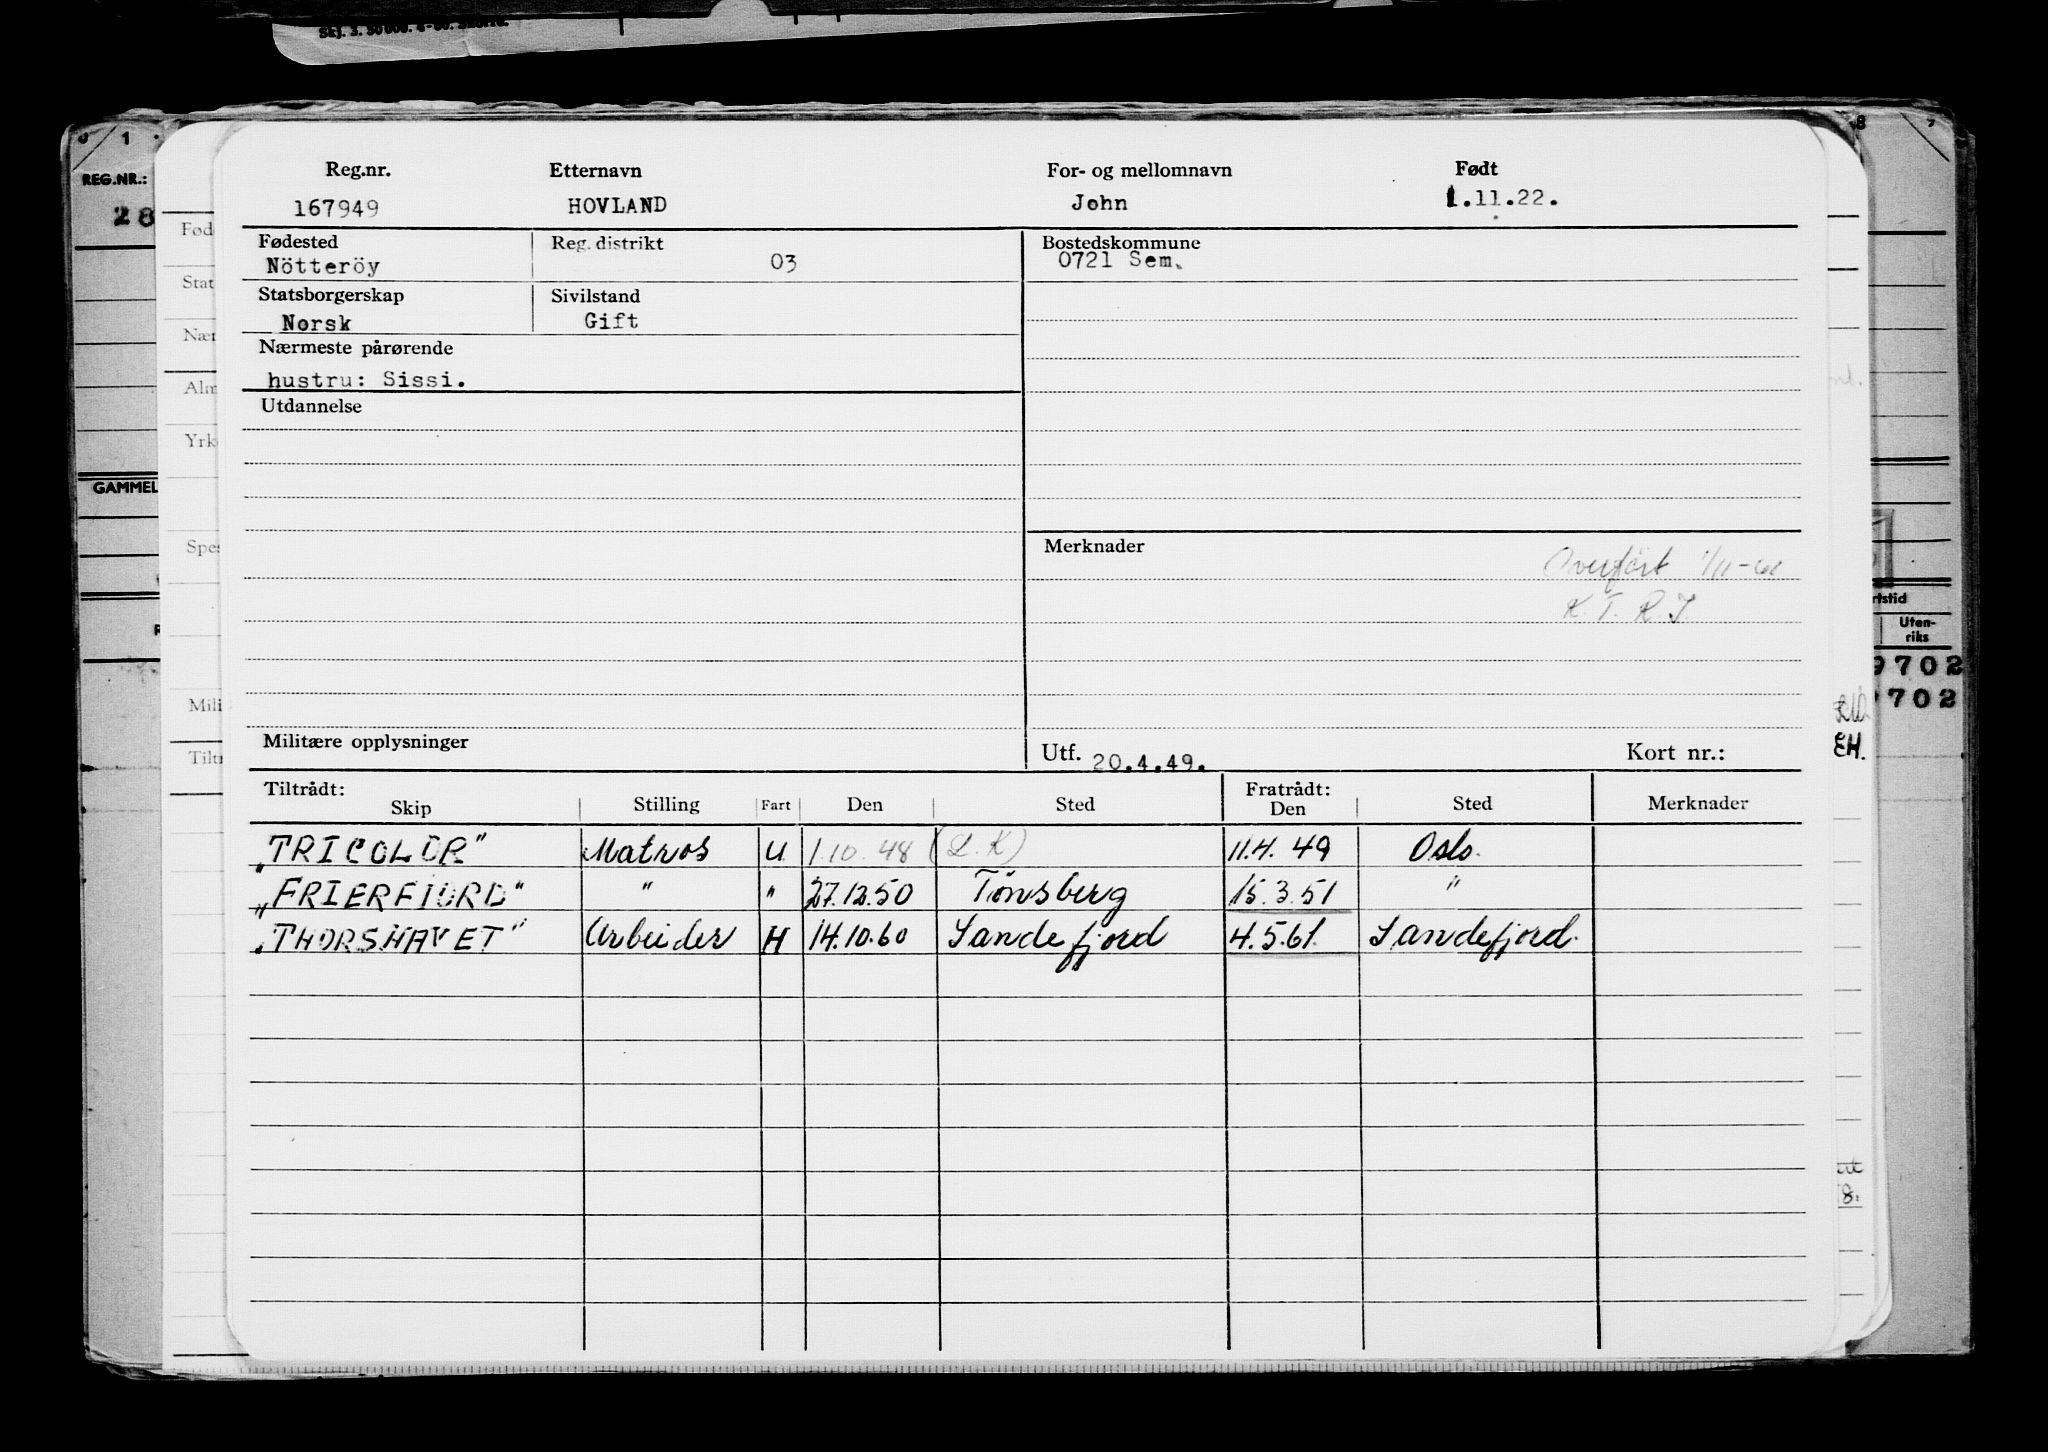 Skj. 3. 50 000.
1
8 7
REG.NR.:
28
Reg.nr. Etternavn For- og mellomnavn Født
167949 HOVLAND John 1.11.22.
Fødested Reg. distrikt Bostedskommune
Nötteröy 03 0721 Sem.
Statsborgerskap Sivilstand
Norsk Gift
Nærmeste pårørende
hustru: Sissi.
Utdannelse
GAMMEL
Merknader
Overført 1/11-61
K.T.R.I.
Uten-
riks
9702
702
EH.
Militære opplysninger Utf. 20.4.49. Kort nr.:
Tiltrådt: Fratrådt:
Skip Stilling Fart Den Sted Den Sted Merknader
"TRICOLOR" Matros U 1.10.48 (L.K) 11.4.49 Oslo.
"FRIERFJORD" " " 27.12.50 Tønsberg 15.3.51 "
"THORSHAVET" Arbeider H 14.10.60 Sandefjord 4.5.61. Sandefjord.